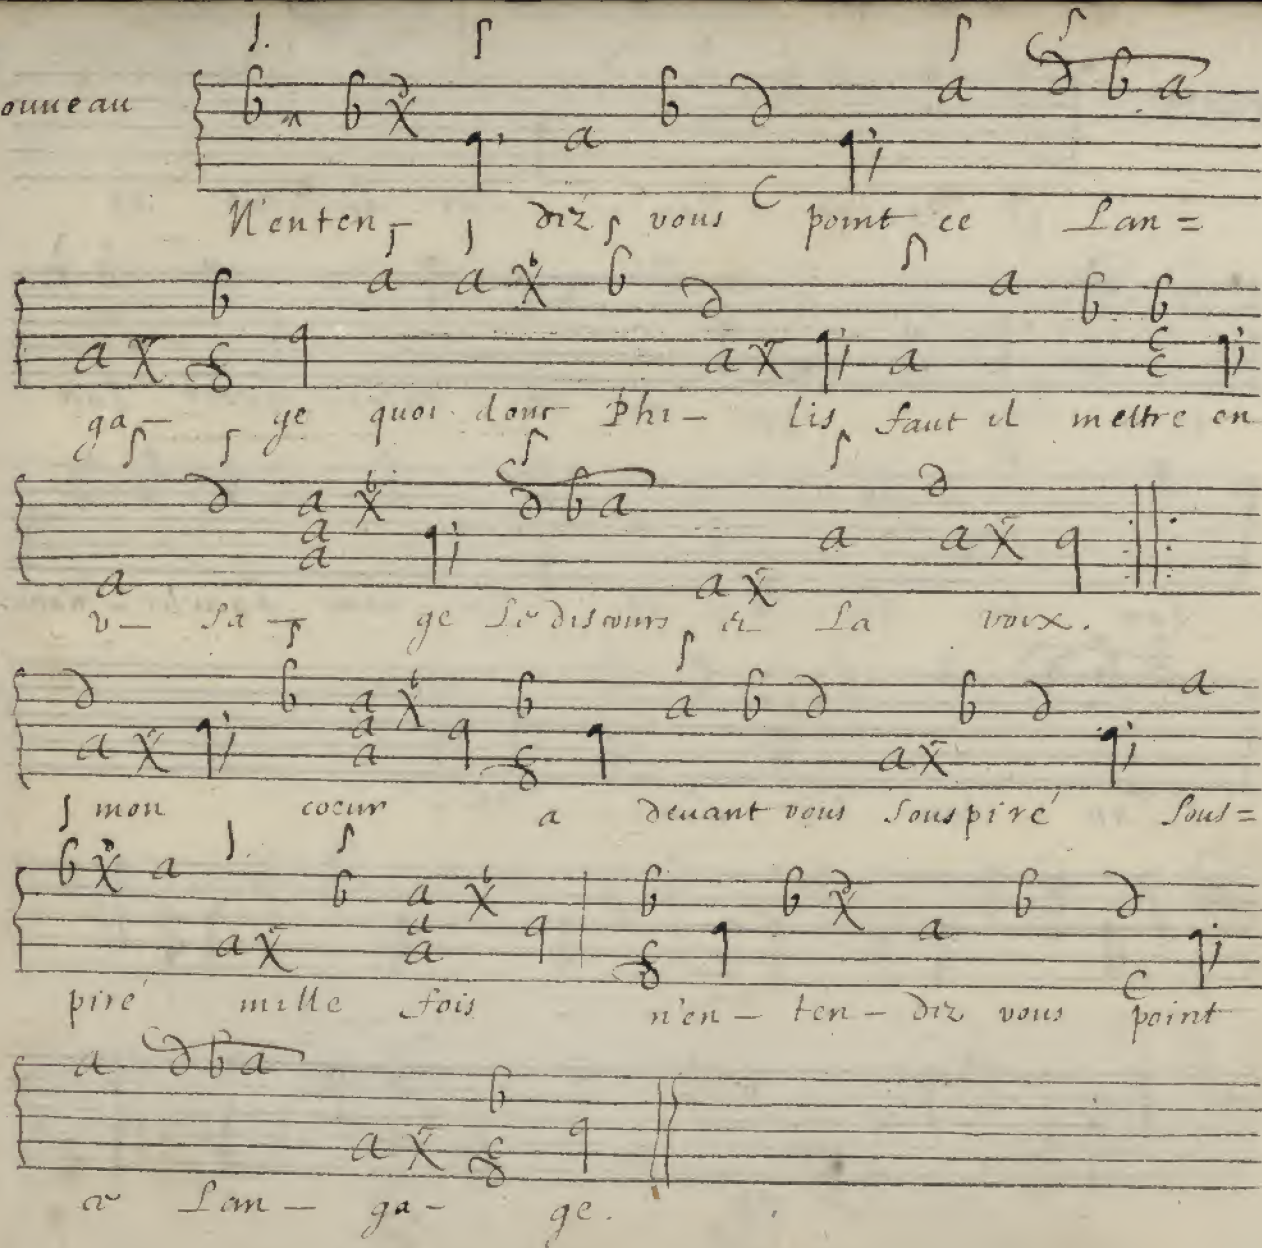 ouueau
N'enten- diz vous point ce Lan=
ga- ge quoi donc Phi- lis faut il mettre en
v- sa- ge Le discours et La voix.
mon coeur a deuant vous souspiré sous=
piré mille fois n'en- ten- diz vous point
ce Lan- ga- ge.